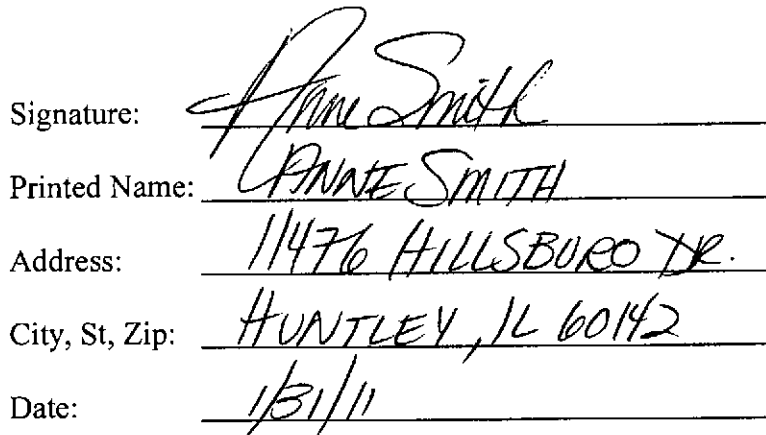 Signature: Anne Smith
Printed Name: ANNE SMITH
Address: 11476 HILLSBORO DR.
City, St, Zip: HUNTLEY, IL 60142
Date: 1/31/11